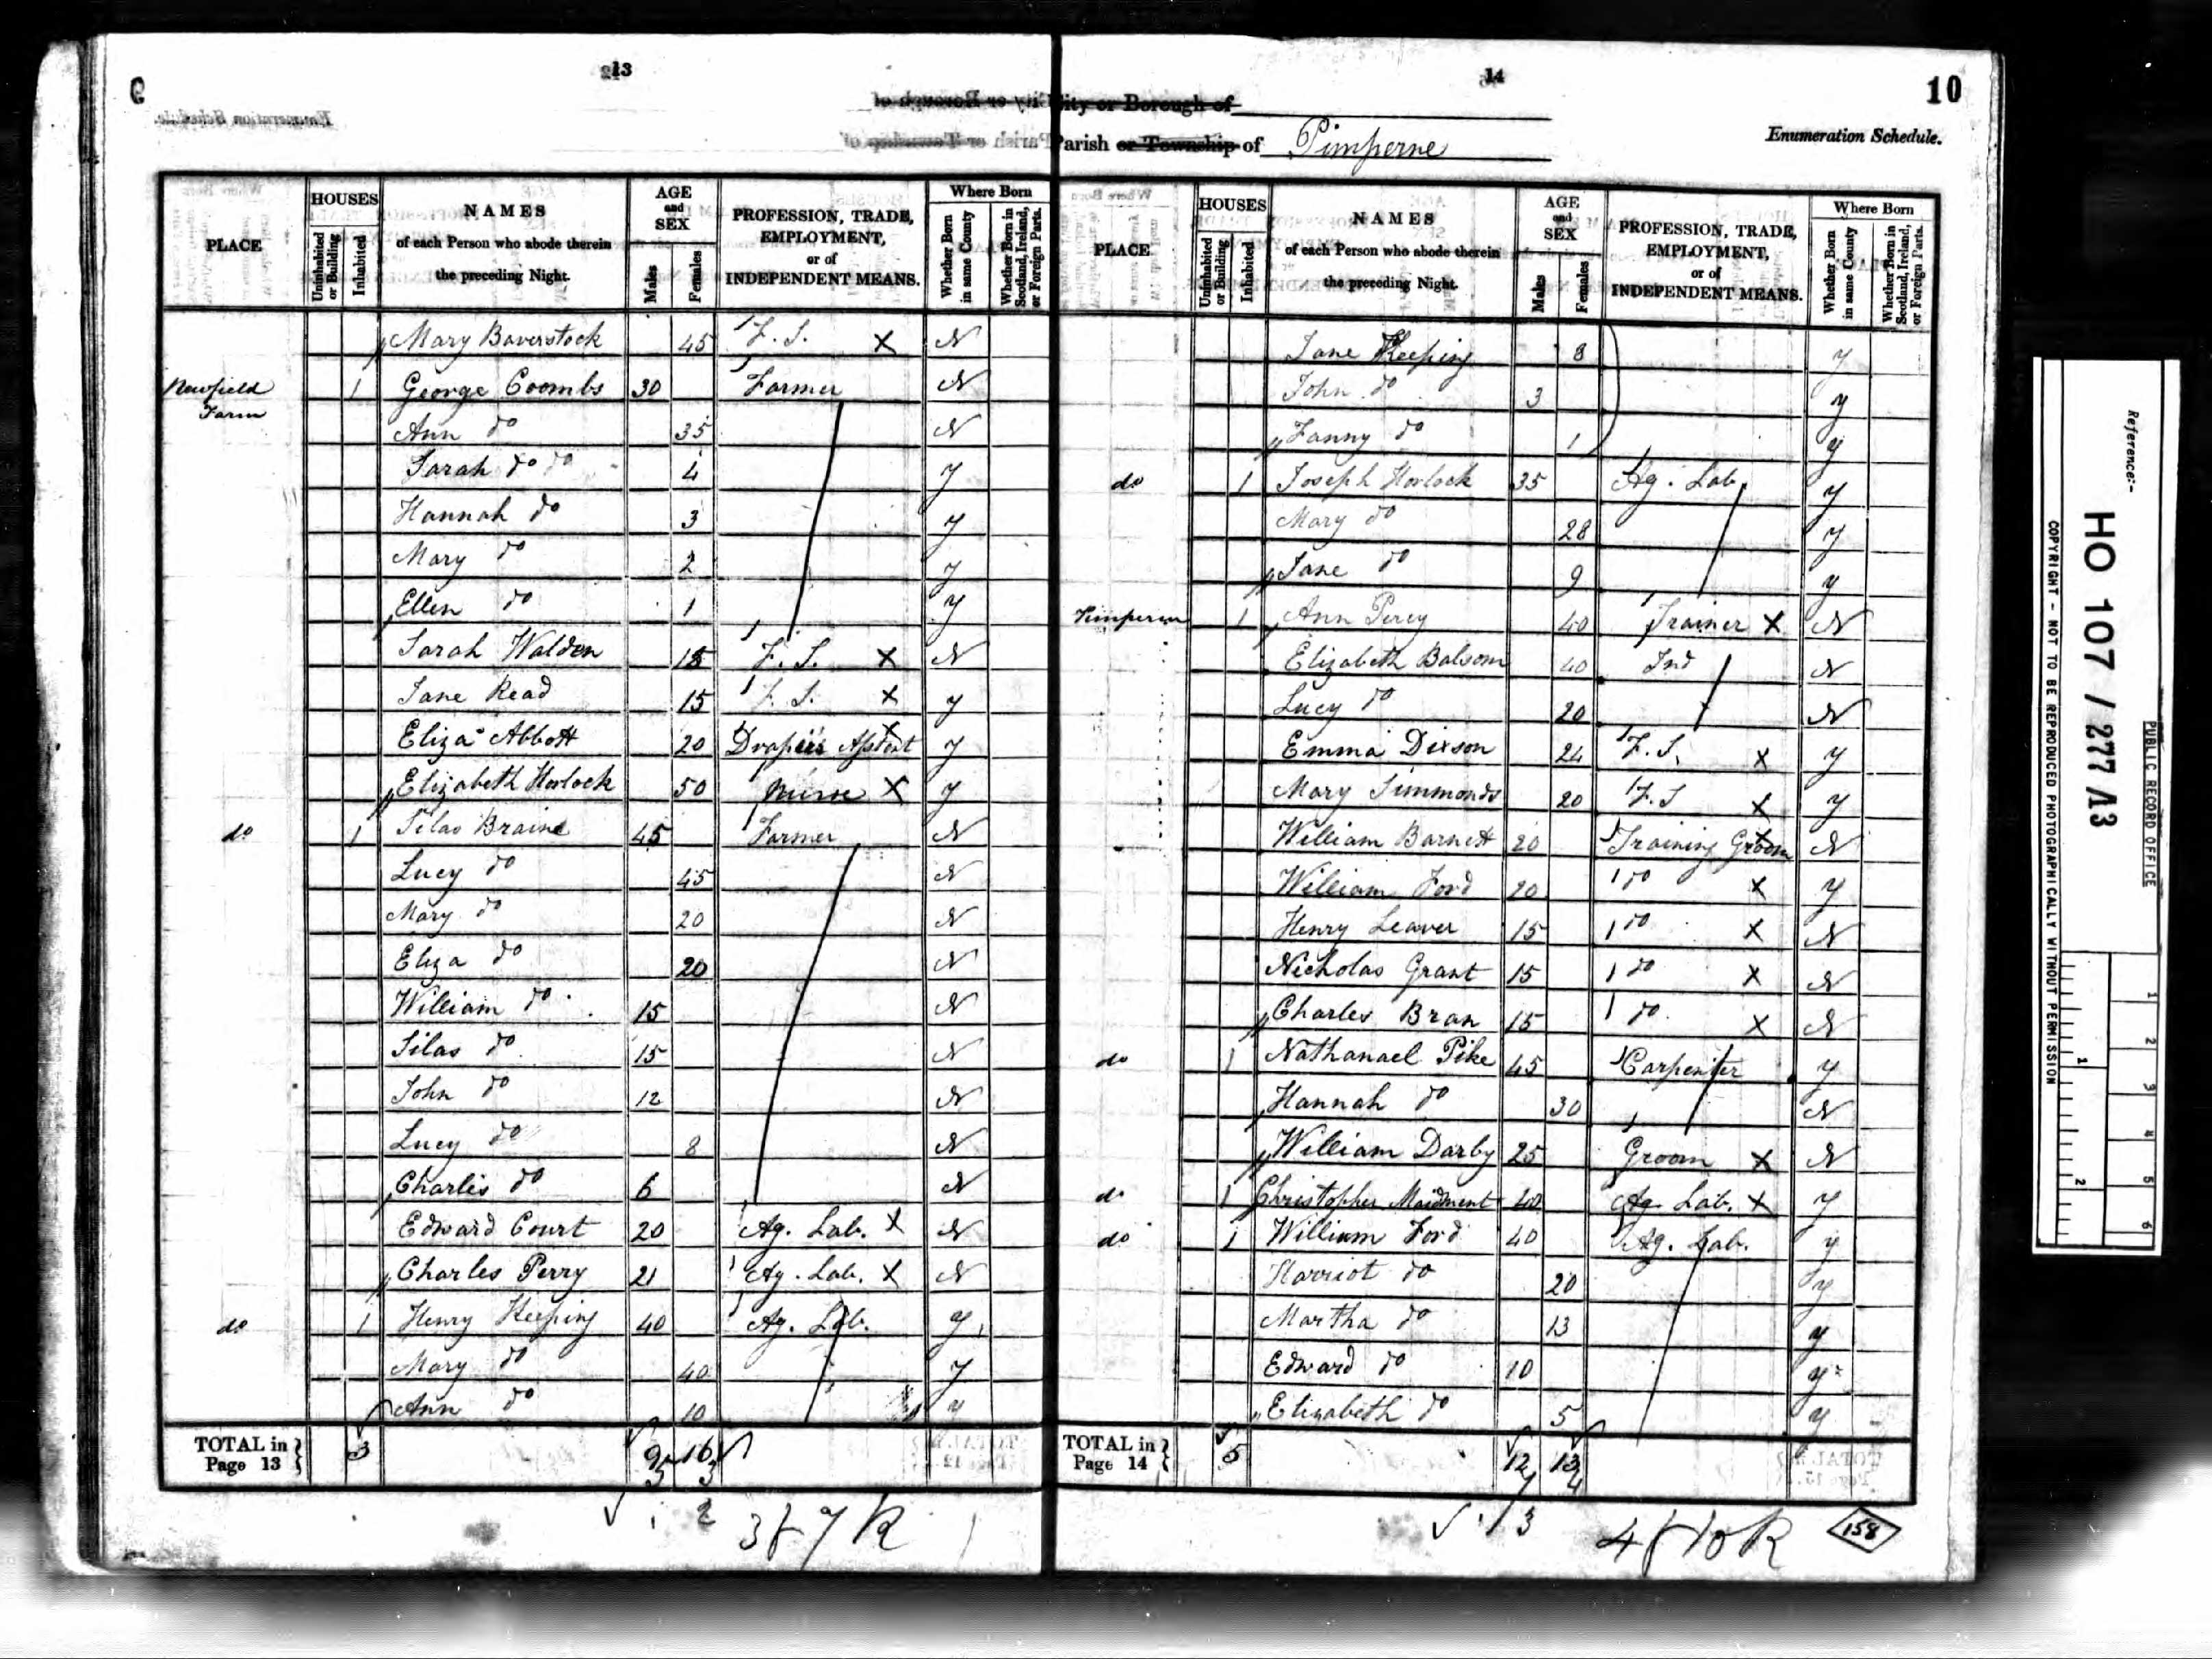 13
PLACE
HOUSES
Uninhabited or Building
Inhabited
NAMES
of each Person who abode therein
the preceding Night.
AGE
and
SEX
Males
Females
PROFESSION, TRADE,
EMPLOYMENT,
or of
INDEPENDENT MEANS.
Where Born
Whether Born in same County
Whether Born in Scotland, Ireland, or Foreign Parts.
Mary Baverstock 45 F. S. X N
Newfield Farm 1 George Coombs 30 Farmer N
Ann do 35 N
Sarah do do 4 y
Hannah do 3 y
Mary do 2 y
Ellen do 1 y
Sarah Walden 18 F. S. X N
Jane Read 15 F. S. X y
Eliza Abbott 20 Draper's Assistant X y
Elizabeth Horlock 50 Nurse X y
do 1 Silas Braine 45 Farmer N
Lucy do 45 N
Mary do 20 N
Eliza do 20 N
William do 15 N
Silas do 15 N
John do 12 N
Lucy do 8 N
Charles do 6 N
Edward Court 20 Ag. Lab. X N
Charles Perry 21 Ag. Lab. X N
do 1 Henry Keeping 40 Ag. Lab. y
Mary do 40 y
Ann do 10 y
TOTAL in Page 13 } 3 9 16
3 3
2 3 f 7 R
14
10
City or Borough of
Parish or Township of Pimperne
Enumeration Schedule.
PLACE
HOUSES
Uninhabited or Building
Inhabited
NAMES
of each Person who abode therein
the preceding Night.
AGE
and
SEX
Males
Females
PROFESSION, TRADE,
EMPLOYMENT,
or of
INDEPENDENT MEANS.
Where Born
Whether Born in same County
Whether Born in Scotland, Ireland, or Foreign Parts.
Jane Keeping 8 y
John do 3 y
Fanny do 1 y
do 1 Joseph Horlock 35 Ag. Lab. y
Mary do 28 y
Jane do 9 y
Pimperne 1 Ann Percy 40 Trainer X N
Elizabeth Balsom 40 Ind N
Lucy do 20 N
Emma Dixson 24 F. S. X y
Mary Simmonds 20 F. S X y
William Barnett 20 Training Groom X N
William Ford 20 do X y
Henry Leaver 15 do X N
Nicholas Grant 15 do X N
Charles Bran 15 do X N
do 1 Nathanael Pike 45 Carpenter y
Hannah do 30 N
William Darby 25 Groom X N
do 1 Christopher Maidment 40 Ag. Lab. X y
do 1 William Ford 40 Ag. Lab. y
Harriot do 20 y
Martha do 13 y
Edward do 10 y
Elizabeth do 5 y
TOTAL in Page 14 } 5 12 13
7 4
1 3 4 f 10 R
158
Reference:-
HO 107 / 277 /13
PUBLIC RECORD OFFICE
COPYRIGHT - NOT TO BE REPRODUCED PHOTOGRAPHICALLY WITHOUT PERMISSION
1 2 3 4 5 6
1 2